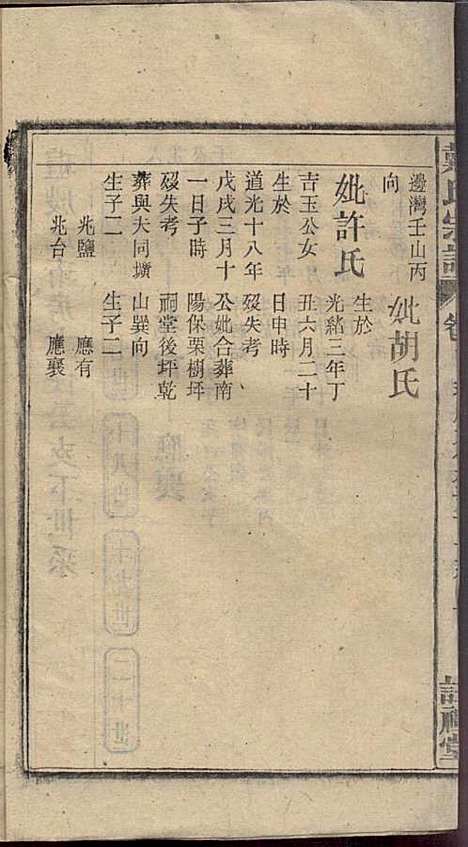 戴氏宗譜
卷
註禮堂
邊灣壬山丙
向
妣許氏
吉玉公女
生於
道光十八年
戊戌三月十
一日子時
歿失考
葬與夫同墳
生子二
兆鹽
兆台
妣胡氏
生於
光緒三年丁
丑六月二十
日申時
歿失考
公妣合葬南
陽保栗樹坪
祠堂後坪乾
山巽向
生子二
應有
應襄